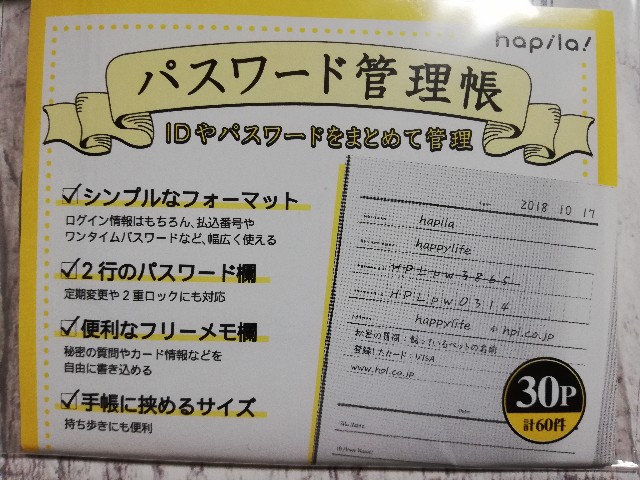 hapila!
パスワード管理帳
IDやパスワードをまとめて管理
シンプルなフォーマット
ログイン情報はもちろん、払込番号や
ワンタイムパスワードなど、幅広く使える
2行のパスワード欄
定期変更や2重ロックにも対応
便利なフリーメモ欄
秘密の質問やカード情報などを
自由に書き込める
手帳に挟めるサイズ
持ち歩きにも便利
2018 10 17
hapila
happylife
HPLpw3865
HPLpw0314
happylife @ hpl.co.jp
秘密の質問:飼っているペットの名前
登録したカード:VISA
www.hpl.co.jp
30P
計60件